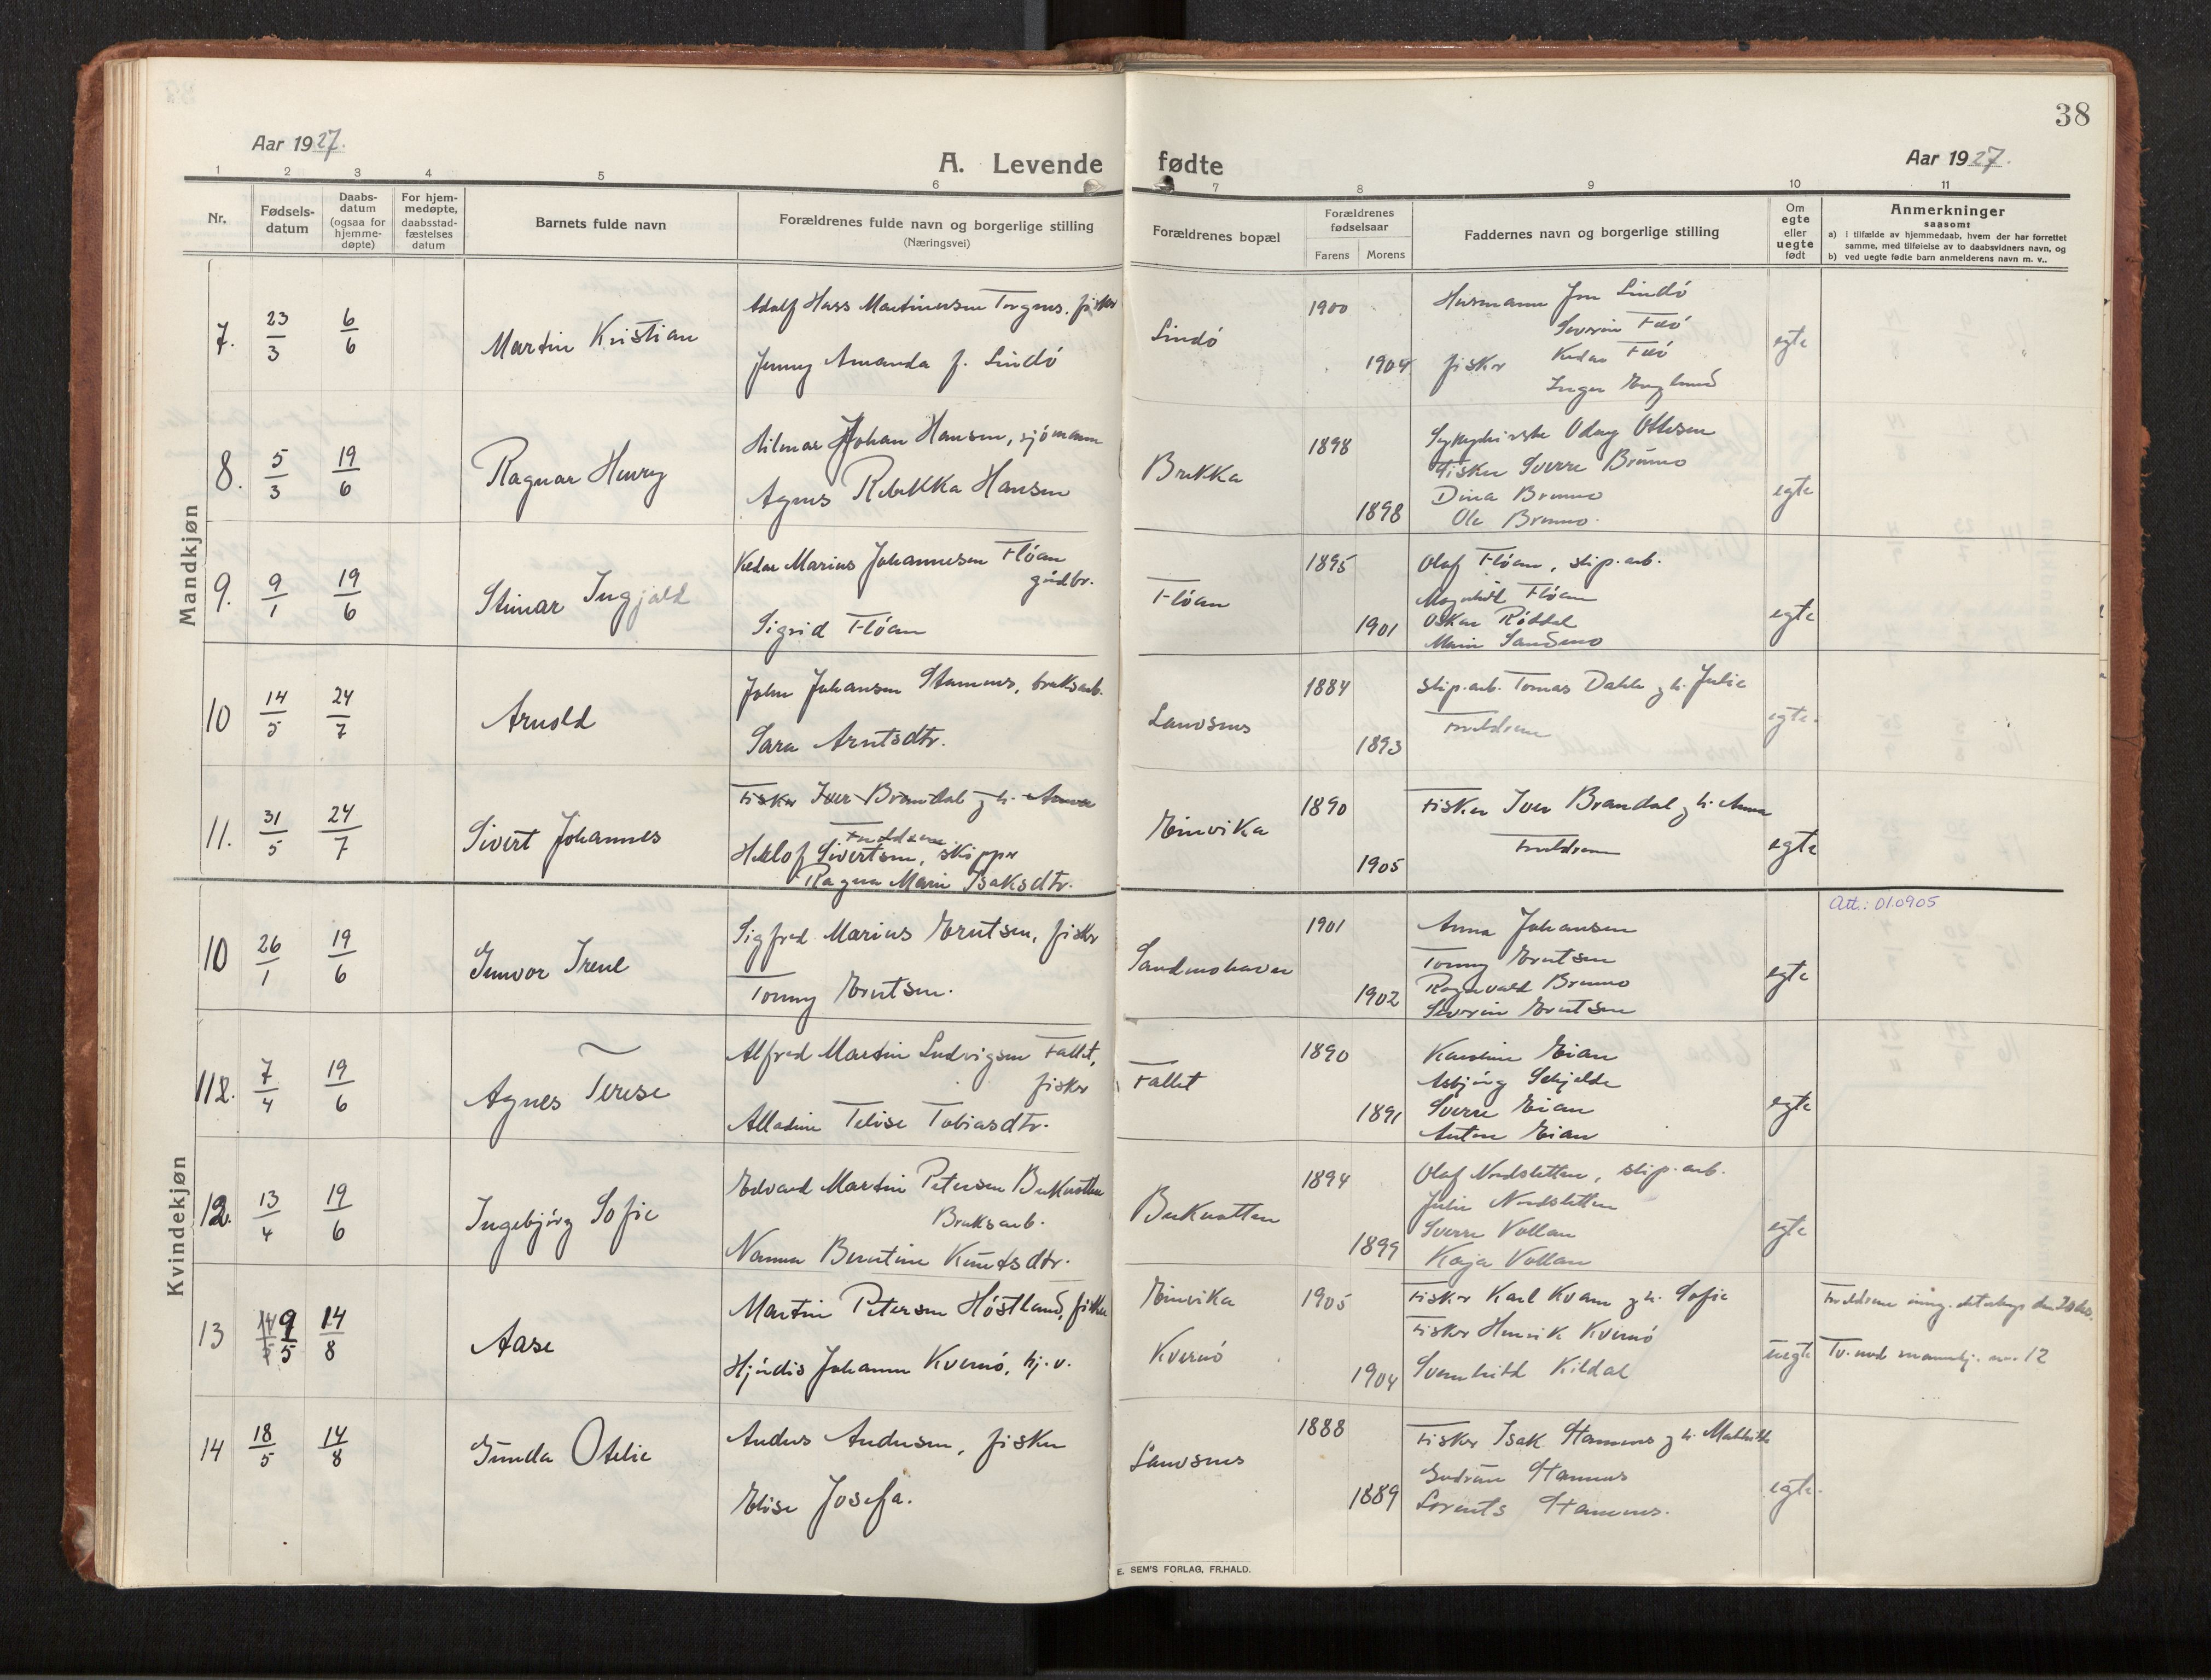 38
Aar 1927.
A. Levende fødte
Aar 1927.
1 2 3 4 5 6 7 8 9 10 11
Nr.
Fødsels-
datum
Daabs-
datum
(ogsaa for
hjemme-
døpte)
For hjem-
medøpte,
daabsstad-
fæstelses
datum
Barnets fulde navn
Forældrenes fulde navn og borgerlige stilling
(Næringsvei)
Forældrenes bopæl
Forældrenes
fødselsaar
Farens Morens
Faddernes navn og borgerlige stilling
Om
egte
eller
uegte
født
Anmerkninger
saasom:
a) i tilfælde av hjemmedaab, hvem der har forrettet
samme, med tilføielse av to daabsvidners navn, og
b) ved uegte fødte barn anmelderens navn m. v..
Mandkjøn
7. 23/3 6/6 Martin Kristian
Adolf Hass Martinussen Torgnes. fisker
Jenny Amanda f. Lindö
Lindö
1900
1904
Husmann Jon Lindö
Severin Flö
fisker Kedar Flö
Inger Englund
egte
8. 5/3 19/6 Ragnar Henry
Hilmar Johan Hansen, sjömann
Agnes Rebekka Hansen
Brekka
1898
1898
Odny Ottesen
Fisker Sverre Brunno
Dina Brunno
Ole Brunno.
egte
9. 9/1 19/6 Steinar Ingjald
Kedar Marius Johannesen Flöan
gårdbr.
Sigrid Flöan
Flöan
1895
1901
Olaf Flöan, slip.arb.
Magnhild Flöan
Oskar
Marie Sandmo
egte
10 14/5 24/7 Arnold
John Johansen Stamnes, bruksarb.
Sara Arntsdtr.
Lauvsnes
1884
1893
Slip.arb. Tomas Dahle g h. Julie
Foreldrene
egte.
11. 31/5 24/7 Sivert Johannes
Fisker Iver Brandal g h. Anna
Foreldrene
Sivertsen, skipper
Ragna Marie Isaksdtr.
Einvika
1890
1905
Fisker Iver Brandal g h. Anna
Foreldrene
egte
Kvindekjøn
10 26/1 19/6 Gunvor Irene
Sigfred Marius Erntsen, fisker
Tonny Erntsen.
Sandmohaven
1901
1902
Anna Johansen
Tonny Erntsen
Ragnvald Brunno
Severin Erntsen
egte
Att.: 010905
11. 7/4 19/6 Agnes Terese
Alfred Martin Ludvigsen Fallet,
fisker
Alladine Telise Tobiasdtr.
Fallet
1890
1891
Karoline Eian
Asbjörg Schjelde
Sverre Eian
Anton Eian
egte
12. 13/4 19/6 Ingebjörg Sofie
Edvard Martin Petersen Brekvatten
Bruksarb.
Nanna Berntine Knutsdtr.
Brekvatten
1894
1899
Olaf Nordsletten, slip.arb.
Julie Nordsletten
Sverre Vollan
Kaja Vollan
egte
13 9/5 14/8 Aase
Martin Petersen Höstland, fisker
Hjördis Johanne Kvernö, hj.v.
Einvika
Kvernö
1905
1904
Fisker Karl Kvam g h. Sofie
Fisker Henrik Kvernö
Svenhild Kildal
uegte
Foreldrene
Tv. med mannkj. nr. 12
14 18/5 14/8 Gunda Otelie
Anders Andersen, fisker
Elise Josefa.
Lauvsnes
1888
1889
Fisker Isak Stamnes g h. Mathilde
Gudrun Stamnes
Lorents Stamnes.
egte.
E. SEM'S FORLAG, FR.HALD.